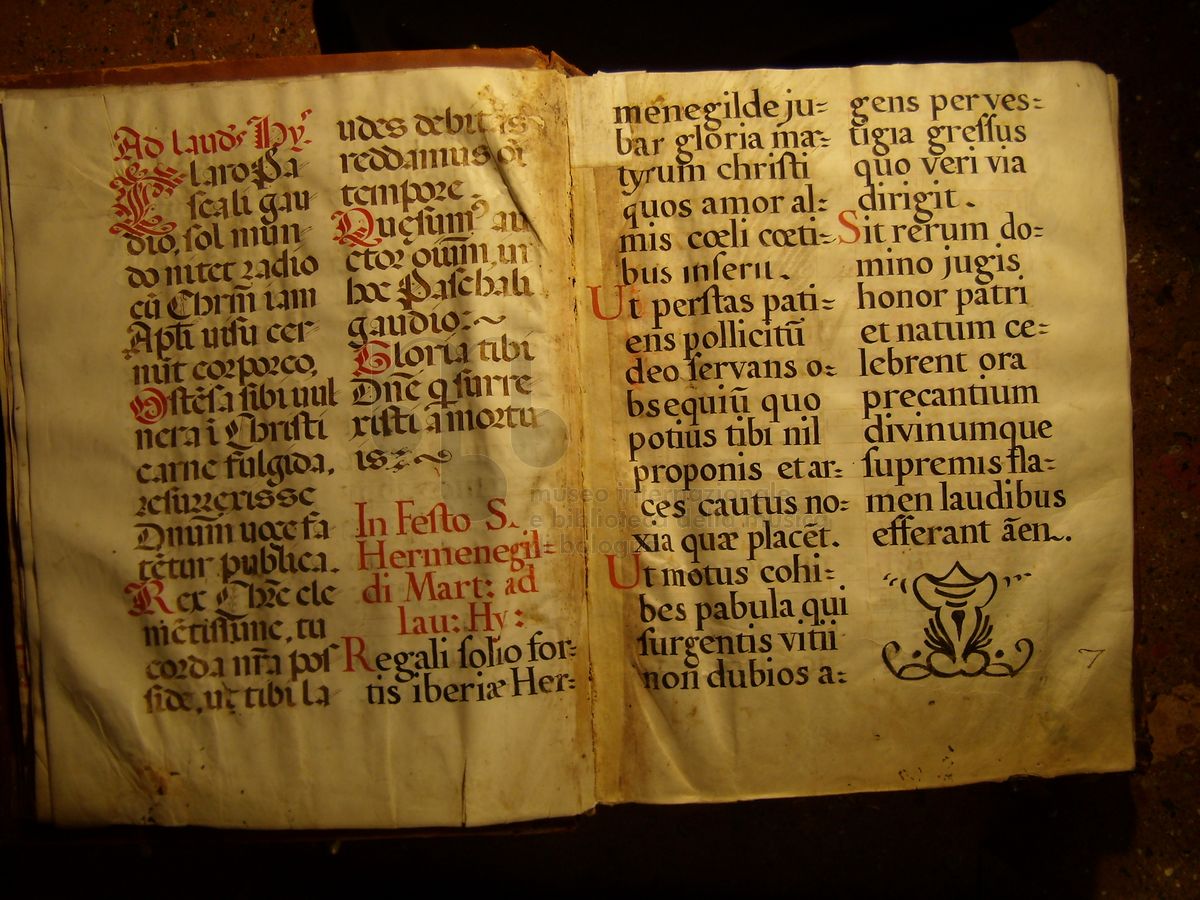 Ad laudes Hy.
Claro Pa
scali gau
dio, sol mun
do nitet radio
cū Chrm̄ iam
Aptī visu cer
nūt corporeo,
Ostēsa sibi vul
nera ī Christi
carne fulgida,
resurrexisse
Dnūm voce fa
tētur publica.
Rex Chrē cle
mētissime, tu
corda nrā pos
side, ut tibi la
udes debitas
reddamus oī
tempore.
Quęsum⁹ au
ctor oiūm, in
hoc Paschali
gaudio:~
Gloria tibi
Dnē q surre
xisti a mortu
is:~
In Festo S.
Hermenegil=
di Mart: ad
lau: Hy:
Regali solio for=
tis iberiæ Her=
menegilde ju=
bar gloria mar=
tyrum christi
quos amor al=
mis cœli cœti=
bus inserit.
Ut perstas pati=
ens pollicitū
deo servans o=
bsequiū quo
potius tibi nil
proponis et ar=
ces cautus no=
xia quæ placet.
Ut motus cohi=
bes pabula qui
surgentis vitii
non dubios a=
gens per ves=
tigia gressus
quo veri via
dirigit.
Sit rerum do=
mino jugis
honor patri
et natum ce=
lebrent ora
precantium
divinumque
supremis fla=
men laudibus
efferant āen.
7
museo internazionale
e biblioteca della musica
bologna